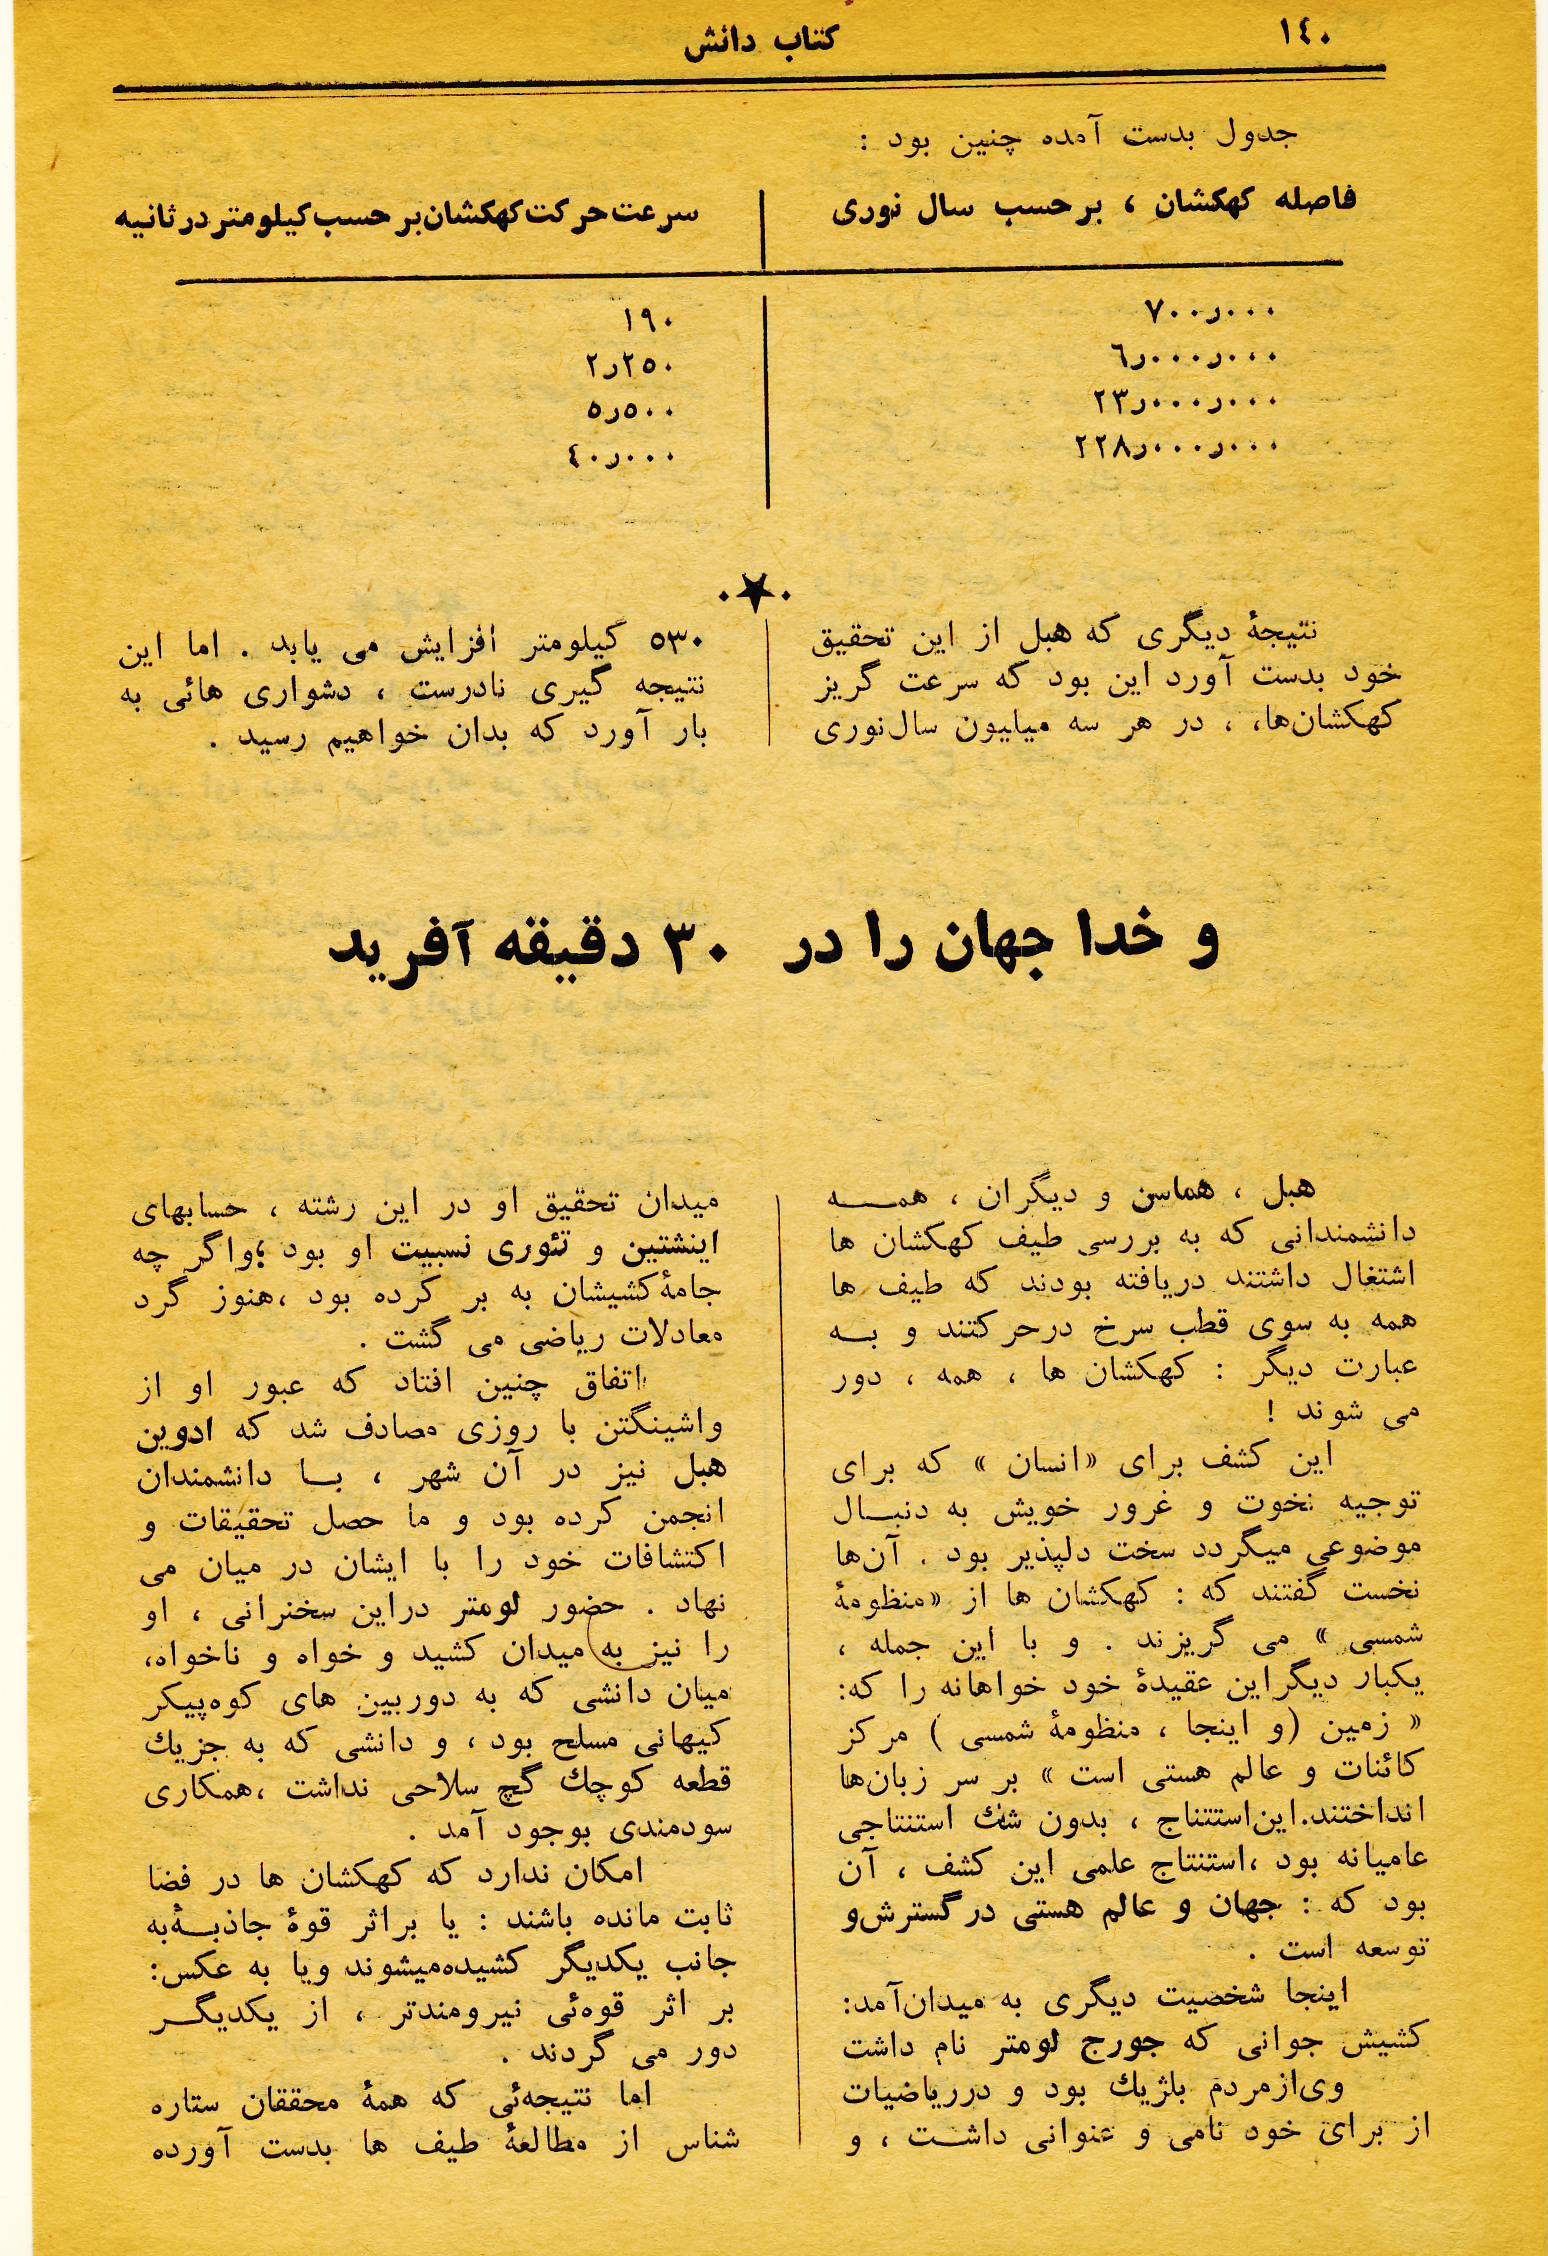 ۱٤۰
کتاب دانش
جدول بدست آمده چنین بود :
فاصله کهکشان ، برحسب سال نوری
سرعت حرکت کهکشان بر حسب کیلومتر در ثانیه
۷۰۰ر۰۰۰
۱۹۰
٦ر۰۰۰ر۰۰۰
۲ر۲۵۰
۲۳ر۰۰۰ر۰۰۰
۵ر۵۰۰
۲۲۸ر۰۰۰ر۰۰۰
٤۰ر۰۰۰
نتیجهٔ دیگری که هبل از این تحقیق
خود بدست آورد این بود که سرعت گریز
کهکشان‌ها، ، در هر سه میلیون سال‌نوری
۵۳۰ کیلومتر افزایش می یابد . اما این
نتیجه گیری نادرست ، دشواری هائی به
بار آورد که بدان خواهیم رسید .
و خدا جهان را در ۳۰ دقیقه آفرید
هبل ، هماسن و دیگران ، همـــه
دانشمندانی که به بررسی طیف کهکشان ها
اشتغال داشتند دریافته بودند که طیف ها
همه به سوی قطب سرخ درحرکتند و بــه
عبارت دیگر : کهکشان ها ، همه ، دور
می شوند !
این کشف برای «انسان » که برای
توجیه نخوت و غرور خویش به دنبــال
موضوعی میگردد سخت دلپذیر بود . آن‌ها
نخست گفتند که : کهکشان ها از «منظومهٔ
شمسی » می گریزند . و با این جمله ،
یکبار دیگراین عقیدهٔ خود خواهانه را که:
« زمین (و اینجا ، منظومهٔ شمسی ) مرکز
کائنات و عالم هستی است » بر سر زبان‌ها
انداختند.این‌استنتاج ، بدون شك استنتاجی
عامیانه بود ،استنتاج علمی این کشف ، آن
بود که : جهان و عالم هستی درگسترش‌و
توسعه است .
اینجا شخصیت دیگری به میدان‌آمد:
کشیش جوانی که جورج لومتر نام داشت
وی‌ازمردم بلژیك بود و درریاضیات
از برای خود نامی و عنوانی داشــت ، و
میدان تحقیق او در این رشته ، حسابهای
اینشتین و تئوری نسبیت او بود ؛واگر چه
جامهٔ‌کشیشان به بر کرده بود ،هنوز گرد
معادلات ریاضی می گشت .
اتفاق چنین افتاد که عبور او از
واشینگتن با روزی مصادف شد که ادوین
هبل نیز در آن شهر ، بــا دانشمندان
انجمن کرده بود و ما حصل تحقیقات و
اکتشافات خود را با ایشان در میان می
نهاد . حضور لومتر دراین سخنرانی ، او
را نیز به میدان کشید و خواه و ناخواه،
میان دانشی که به دوربین های کوه‌پیکر
کیهانی مسلح بود ، و دانشی که به جزیك
قطعه کوچك گچ سلاحی نداشت ،همکاری
سودمندی بوجود آمد .
امکان ندارد که کهکشان ها در فضا
ثابت مانده باشند : یا براثر قوهٔ جاذبــهٔ‌به
جانب یکدیگر کشیده‌میشوند ویا به عکس:
بر اثر قوه‌ئی نیرومندتر ، از یکدیگــر
دور می گردند .
اما نتیجه‌ئی که همهٔ محققان ستاره
شناس از مطالعهٔ طیف ها بدست آورده